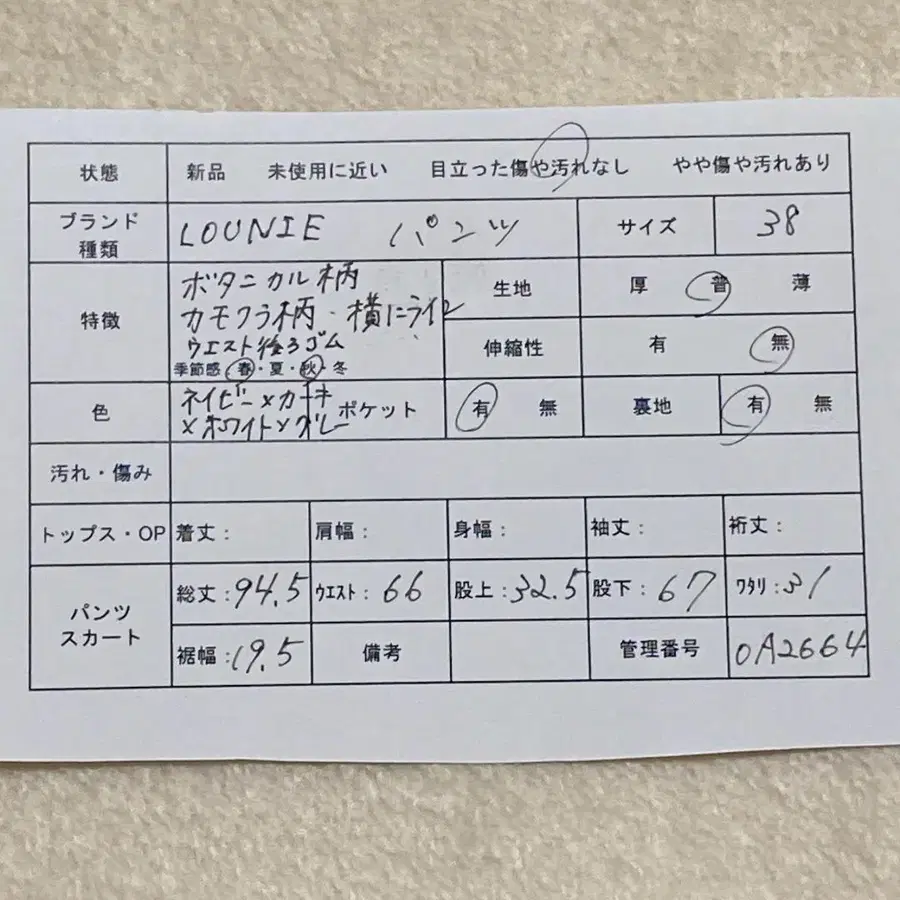 状態 新品 未使用に近い 目立った傷や汚れなし やや傷や汚れあり
ブランド 種類 LOUNIE パンツ サイズ 38
特徴 ボタニカル柄
カモフラ柄・横にライン
ウエスト後ろゴム
季節感 春・夏・秋・冬
生地 厚 普 薄
伸縮性 有 無
色 ネイビー×カーキ
×ホワイト×グレー
ポケット 有 無 裏地 有 無
汚れ・傷み
トップス・OP 着丈: 肩幅: 身幅: 袖丈: 裄丈:
パンツ スカート 総丈:94.5 ウエスト:66 股上:32.5 股下:67 ワタリ:31
裾幅:19.5 備考 管理番号 0A2664